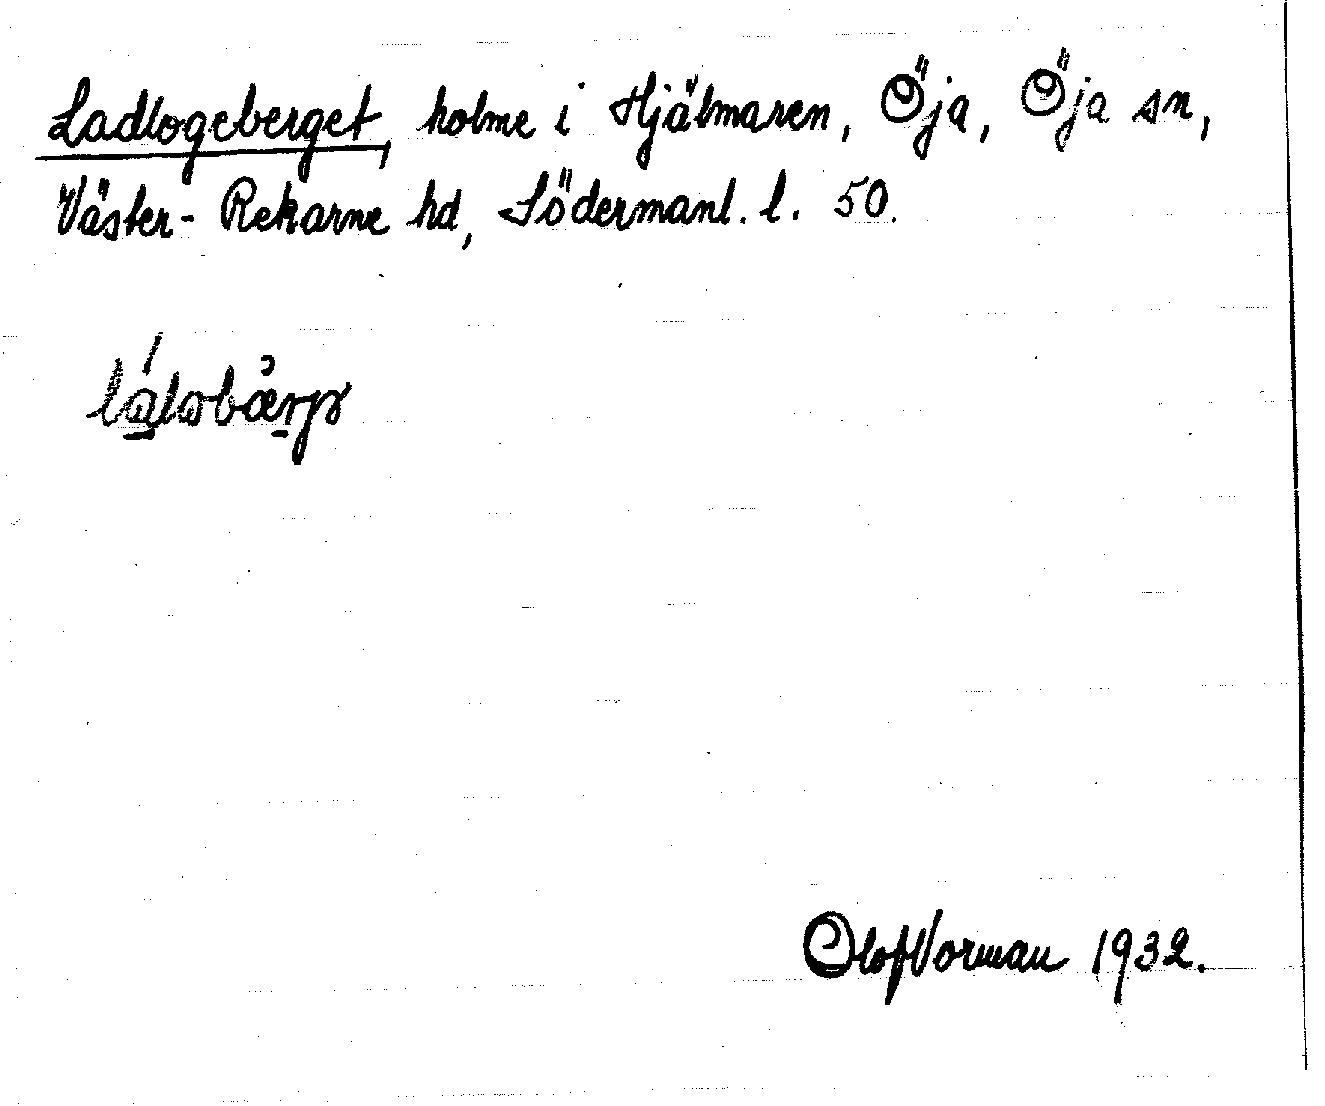 Ladlogeberget, holme i Hjälmaren, Öja, Öja sn,
Väster-Rekarne hd, Södermanl. l. 50.
Olof Vorman 1932.